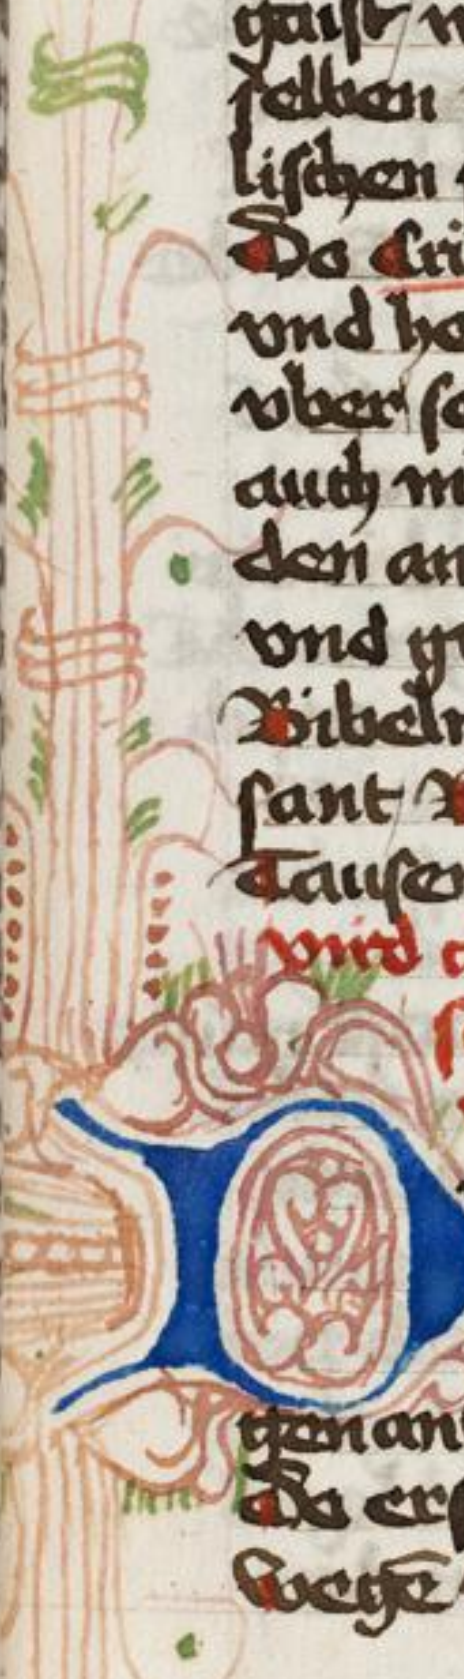 gaist
selben
lischen
Do Cri
vnd ho
vber so
auch mi
den an
vnd ge
Bibeln
sant
Tausen
wird
D
genant
Do ers
wegē